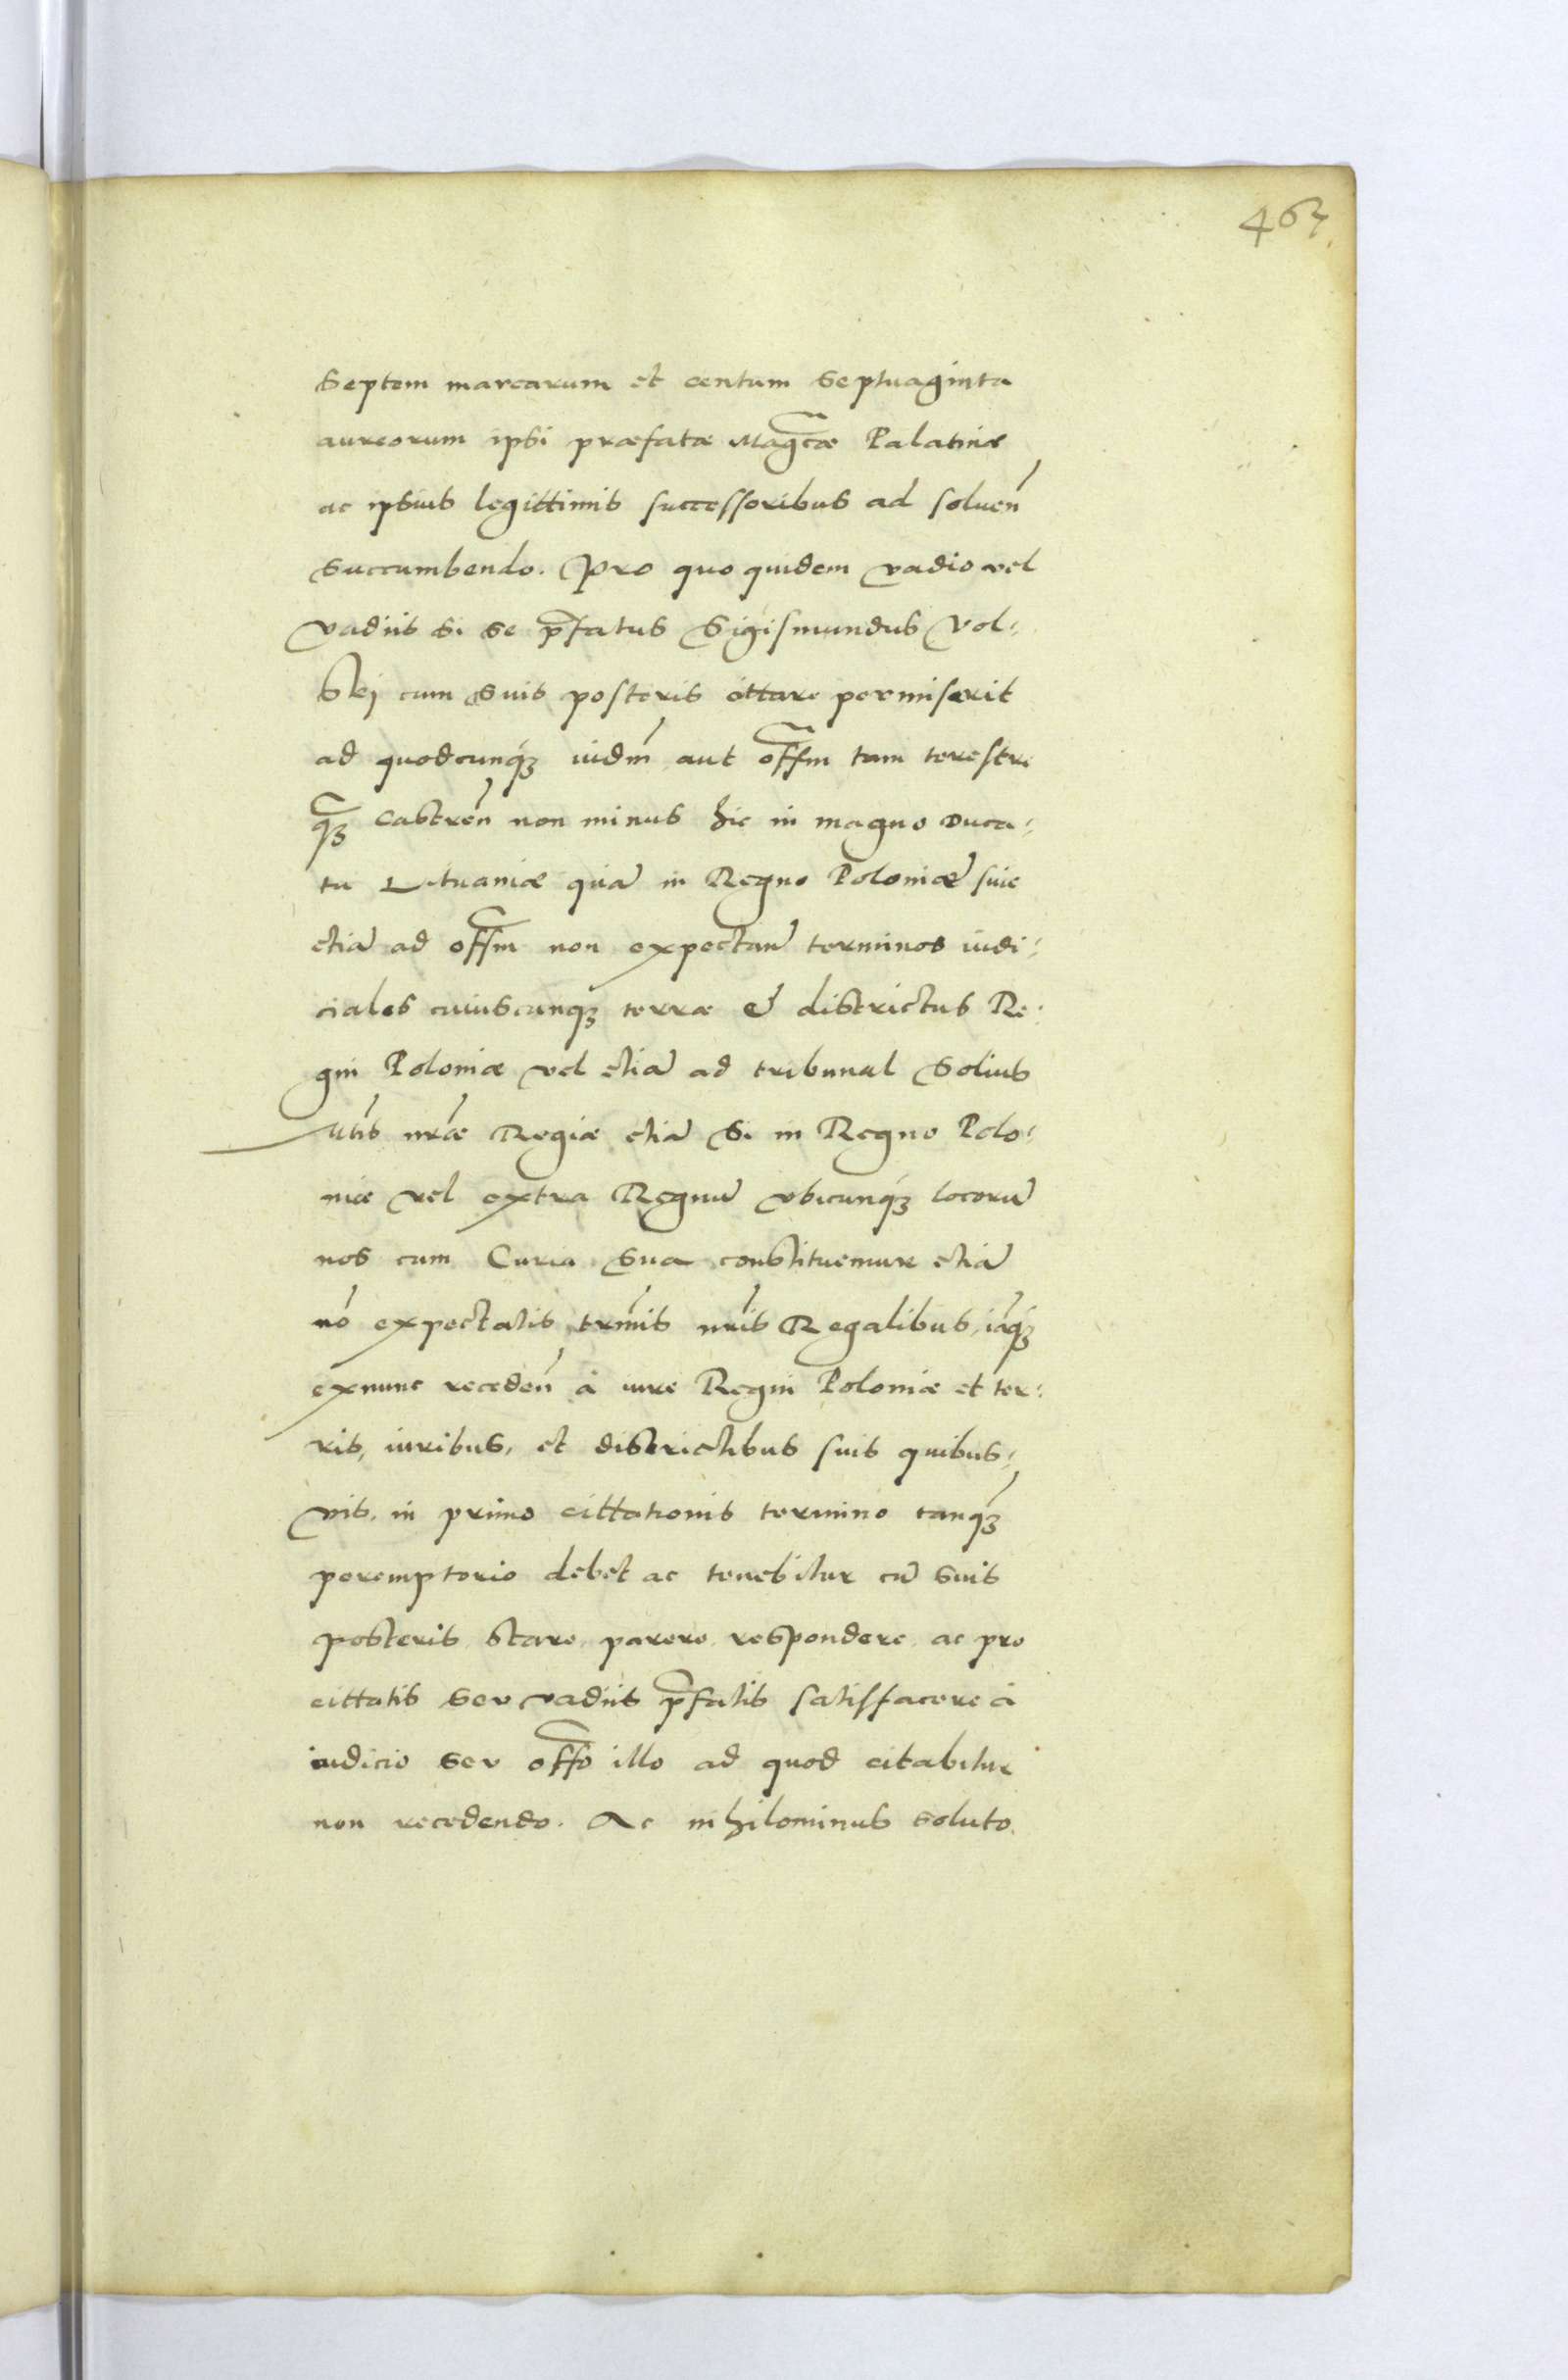 467.
septem marcarum et centum septuaginta
aureorum ipsi præfatæ Magcæ Palatinæ
ac ipsius legittimis successoribus ad soluen
succumbendo. Pro quo quidem vadio vel
vadiis si se pfatus Sigismundus Vol:
skj cum suis posteris cittare permiserit
ad quodcunq3 iudm aut offm tam terestre
q3 castren non minus hic in magno Duca:
tu Lituaniæ quā in Regno Poloniæ siue
etiā ad offm non expectan̄ terminos iudi:
ciales cuiuscunq3 terræ & districtus Re:
gni Poloniæ vel etiā ad tribunal solius
Mtis nr̄æ Regiæ etiā si in Regno Polo:
niæ vel extra Regnū vbicunq3 locorū
nos cum Curia sua constituemur etiā
nō expectatis trmis nr̄is Regalibus, iāq3
exnunc receden̄ à iure Regni Poloniæ et ter:
ris, iuribus, et districtibus suis quibus:
vis, in primo cittationis termino tanq3
peremptorio debet ac tenebitur cū suis
posteris stare, parere, respondere, ac pro
cittatis seu vadiis pfatis satisfacere à
iudicio seu offo illo ad quod citabitur
non recedendo. Ac nihilominus soluto